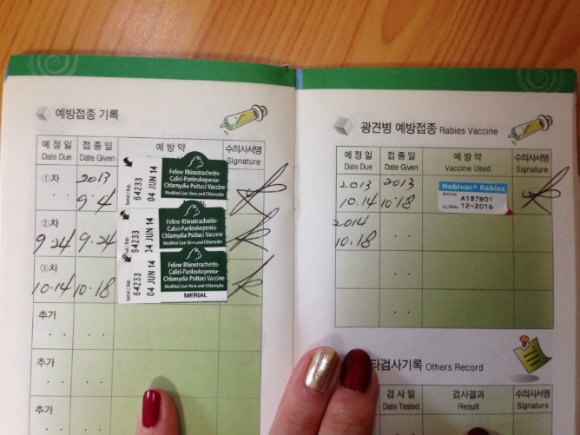 예방접종 기록
예정일 접종일 예방약 수의사서명
Date Due Date Given Signature
①차 2013
9.4
②차
9.24 9.24
③차
10.14 10.18
64233 04 JUN 14
Feline Rhinotracheitis-
Calici-Panleukopenia-
Chlamydia Psittaci Vaccine
Modified Live Virus and Chlamydia
64233 04 JUN 14
Feline Rhinotracheitis-
Calici-Panleukopenia-
Chlamydia Psittaci Vaccine
Modified Live Virus and Chlamydia
64233 04 JUN 14
Feline Rhinotracheitis-
Calici-Panleukopenia-
Chlamydia Psittaci Vaccine
Modified Live Virus and Chlamydia
MERIAL
추가
추가
추가
광견병 예방접종 Rabies Vaccine
예정일 접종일 예방약 수의사서명
Date Due Date Given Vaccine Used Signature
2013 2013
10.14 10.18
Nobivac® Rabies
A137B01
12-2016
2014
10.18
타검사기록 Others Record
검사일 검사결과 수의사서명
Date Tested Result Signature